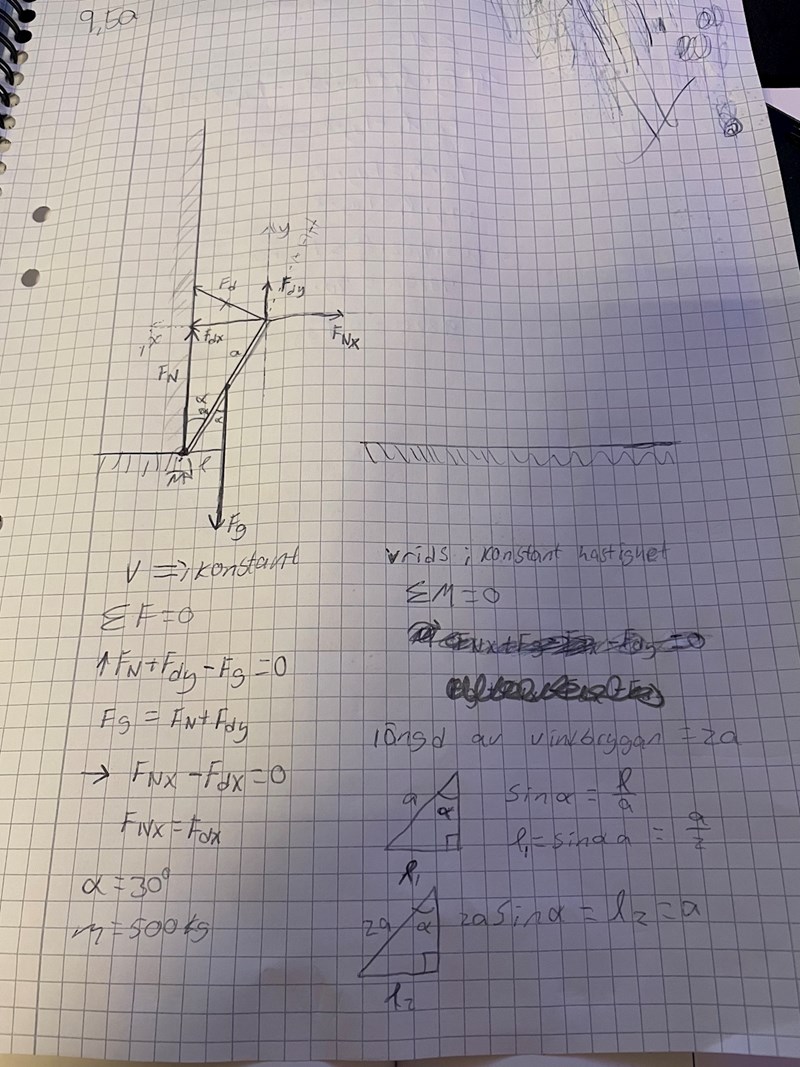 9,5a
y
Fd
Fdy
x
Fdx
FNx
a
FN
α
M
l
Fg
V =; konstant
ΣF=0
↑FN+Fdy-Fg=0
Fg = FN+Fdy
→ FNx -Fdx=0
FNx=Fdx
α=30°
m=500kg
vrids ; konstant hastighet
ΣM=0
längd av vindbryggan = 2a
a
α
l₁
sinα = l/a
l₁=sinα a = a/2
2a
α
l₂
2a sinα = l₂ = a